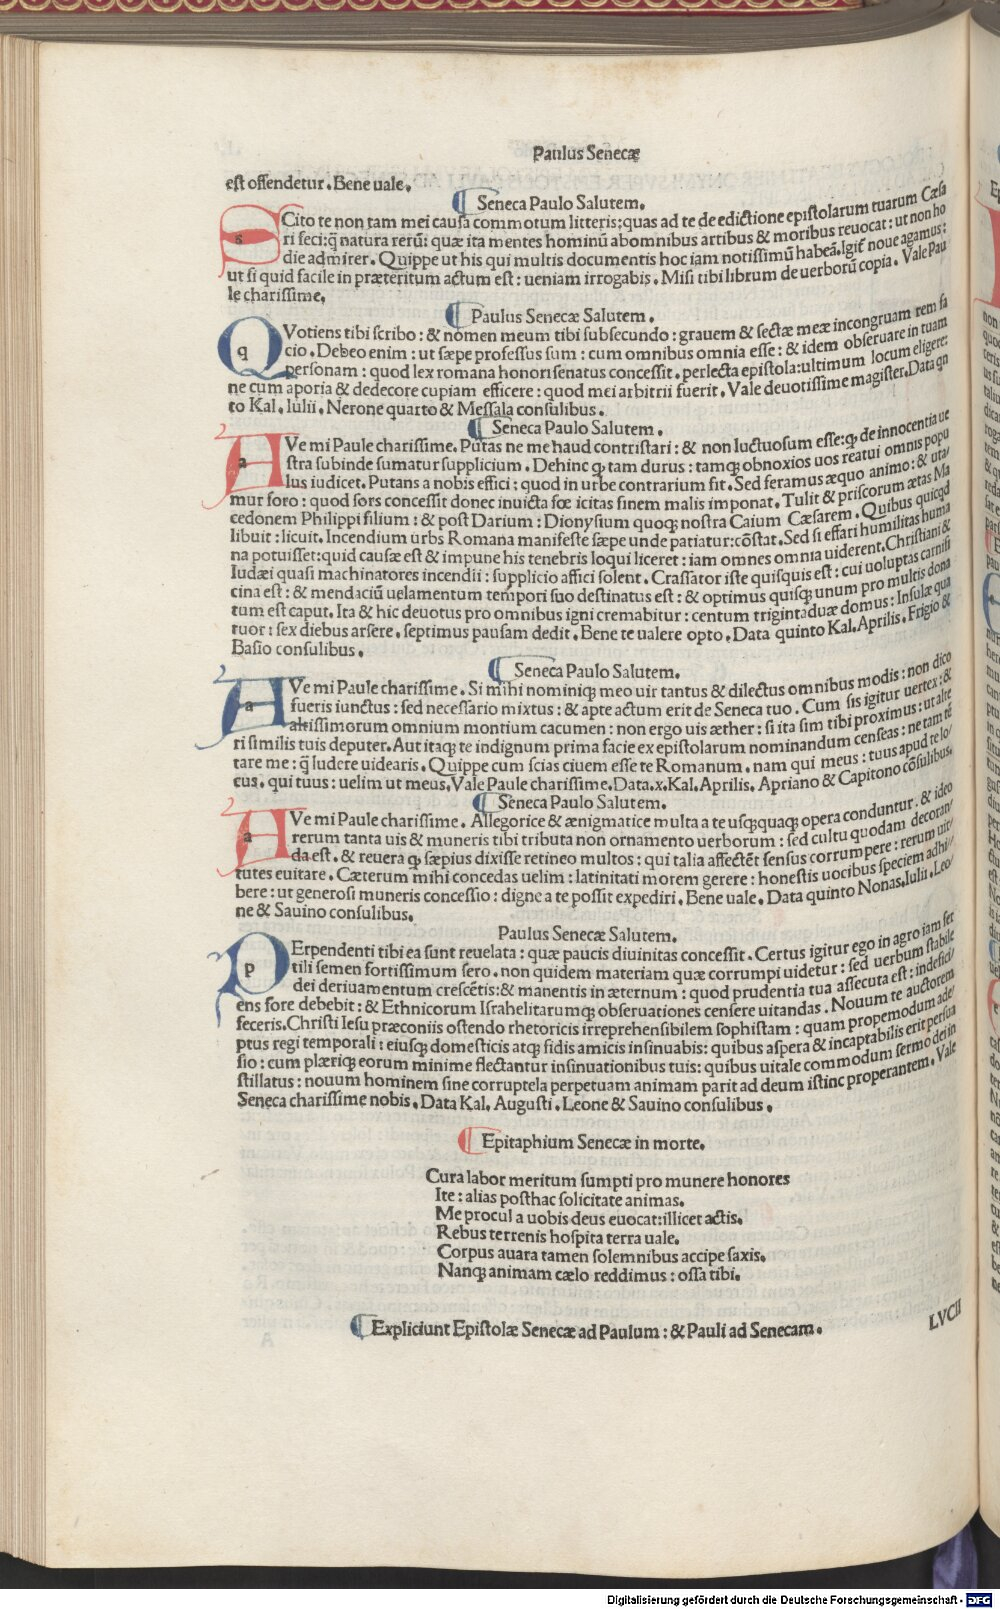 Paulus Senecæ
est offendetur. Bene uale.
Seneca Paulo Salutem.
SCito te non tam mei causa commotum litteris: quas ad te de edictione epistolarum tuarum Cæsa
ri feci: q̃ natura rerũ: quæ ita mentes hominũ abomnibus artibus & moribus reuocat: ut non ho
die admirer. Quippe ut his qui multis documentis hoc iam notissimũ habeã. Igit̃ noue agamus:
ut si quid facile in præteritum actum est: ueniam irrogabis. Misi tibi librum de uerborũ copia. Vale Pau
le charissime.
Paulus Senecæ Salutem.
QVotiens tibi scribo: & nomen meum tibi subsecundo: grauem & sectæ meæ incongruam rem fa
cio. Debeo enim: ut sæpe professus sum: cum omnibus omnia esse: & idem obseruare in tuam
personam: quod lex romana honori senatus concessit. perlecta epistola: ultimum locum eligere:
ne cum aporia & dedecore cupiam efficere: quod mei arbitrii fuerit. Vale deuotissime magister. Data qn
to Kal. Iulii. Nerone quarto & Messala consulibus.
Seneca Paulo Salutem.
AVe mi Paule charissime. Putas ne me haud contristari: & non luctuosum esse: ꝙ de innocentia ue
stra subinde sumatur supplicium. Dehinc ꝙ tam durus: tamqꝫ obnoxios uos reatui omnis popu
lus iudicet. Putans a nobis effici: quod in urbe contrarium fit. Sed feramus æquo animo: & uta/
mur foro: quod sors concessit donec inuicta fœ icitas finem malis imponat. Tulit & priscorum ætas Ma
cedonem Philippi filium: & post Darium: Dionysium quoqꝫ nostra Caium Cæsarem. Quibus quicqd
libuit: licuit. Incendium urbs Romana manifeste sæpe unde patiatur: cõstat. Sed si effari humilitas huma
na potuisset: quid causæ est & impune his tenebris loqui liceret: iam omnes omnia uiderent. Christiani &
Iudæi quasi machinatores incendii: supplicio affici solent. Crassator iste quisquis est: cui uoluptas carnifi
cina est: & mendaciũ uelamentum tempori suo destinatus est: & optimus quisqꝫ unum pro multis dona
tum est caput. Ita & hic deuotus pro omnibus igni cremabitur: centum triginta duæ domus: Insulæ qua
tuor: sex diebus arsere. septimus pausam dedit. Bene te ualere opto. Data quinto Kal. Aprilis. Frigio &
Basio consulibus.
Seneca Paulo Salutem.
AVe mi Paule charissime. Si mihi nominiqꝫ meo uir tantus & dilectus omnibus modis: non dico
fueris iunctus: sed necessario mixtus: & apte actum erit de Seneca tuo. Cum sis igitur uertex: &
altissimorum omnium montium cacumen: non ergo uis æther: si ita sim tibi proximus: ut alte
ri similis tuis deputer. Aut itaqꝫ te indignum prima facie ex epistolarum nominandum censeas: ne tam te
tare me: q̃ ludere uidearis. Quippe cum scias ciuem esse te Romanum. nam qui meus: tuus apud te lo/
cus. qui tuus: uelim ut meus. Vale Paule charissime. Data. x. Kal. Aprilis. Apriano & Capitono cõsulibus.
Seneca Paulo Salutem.
AVe mi Paule charissime. Allegorice & ænigmatice multa a te usqꝫquaqꝫ opera conduntur. & ideo
rerum tanta uis & muneris tibi tributa non ornamento uerborum: sed cultu quodam decoran/
da est. & reuera ꝙ sæpius dixisse retineo multos: qui talia affectẽt sensus corrumpere: rerum uir/
tutes euitare. Cæterum mihi concedas uelim: latinitati morem gerere: honestis uocibus speciem adhi/
bere: ut generosi muneris concessio: digne a te possit expediri. Bene uale. Data quinto Nonas. Iulii. Leo/
ne & Sauino consulibus.
Paulus Senecæ Salutem.
PErpendenti tibi ea sunt reuelata: quæ paucis diuinitas concessit. Certus igitur ego in agro iam fer
tili semen fortissimum sero. non quidem materiam quæ corrumpi uidetur: sed uerbum stabile
dei deriuamentum crescẽtis: & manentis in æternum: quod prudentia tua assecuta est: indefici/
ens fore debebit: & Ethnicorum Israhelitarumqꝫ obseruationes censere uitandas. Nouum te auctorem
feceris. Christi Iesu præconiis ostendo rhetoricis irreprehensibilem sophistam: quam propemodum ade/
ptus regi temporali: eiusqꝫ domesticis atqꝫ fidis amicis insinuabis: quibus aspera & incaptabilis erit persua
sio: cum plæriqꝫ eorum minime flectantur insinuationibus tuis: quibus uitale commodum sermo dei in
stillatus: nouum hominem sine corruptela perpetuam animam parit ad deum istinc properantem. Vale
Seneca charissime nobis. Data Kal. Augusti. Leone & Sauino consulibus.
Epitaphium Senecæ in morte.
Cura labor meritum sumpti pro munere honores
Ite: alias posthac solicitate animas.
Me procul a uobis deus euocat: illicet actis.
Rebus terrenis hospita terra uale.
Corpus auara tamen solemnibus accipe saxis.
Nanqꝫ animam cælo reddimus: ossa tibi.
Expliciunt Epistolæ Senecæ ad Paulum: & Pauli ad Senecam.
LVCII
Digitalisierung gefördert durch die Deutsche Forschungsgemeinschaft - DFG